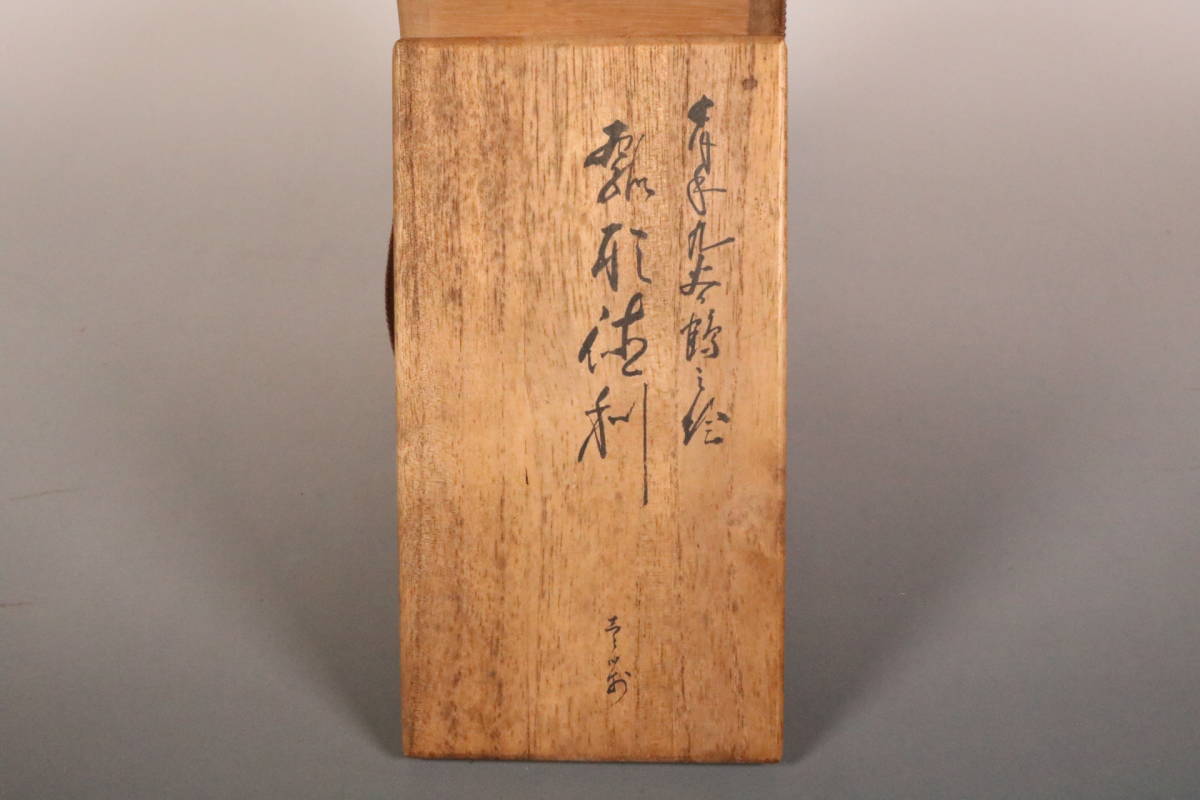 青手九谷鶴之絵
瓢形徳利
壱対